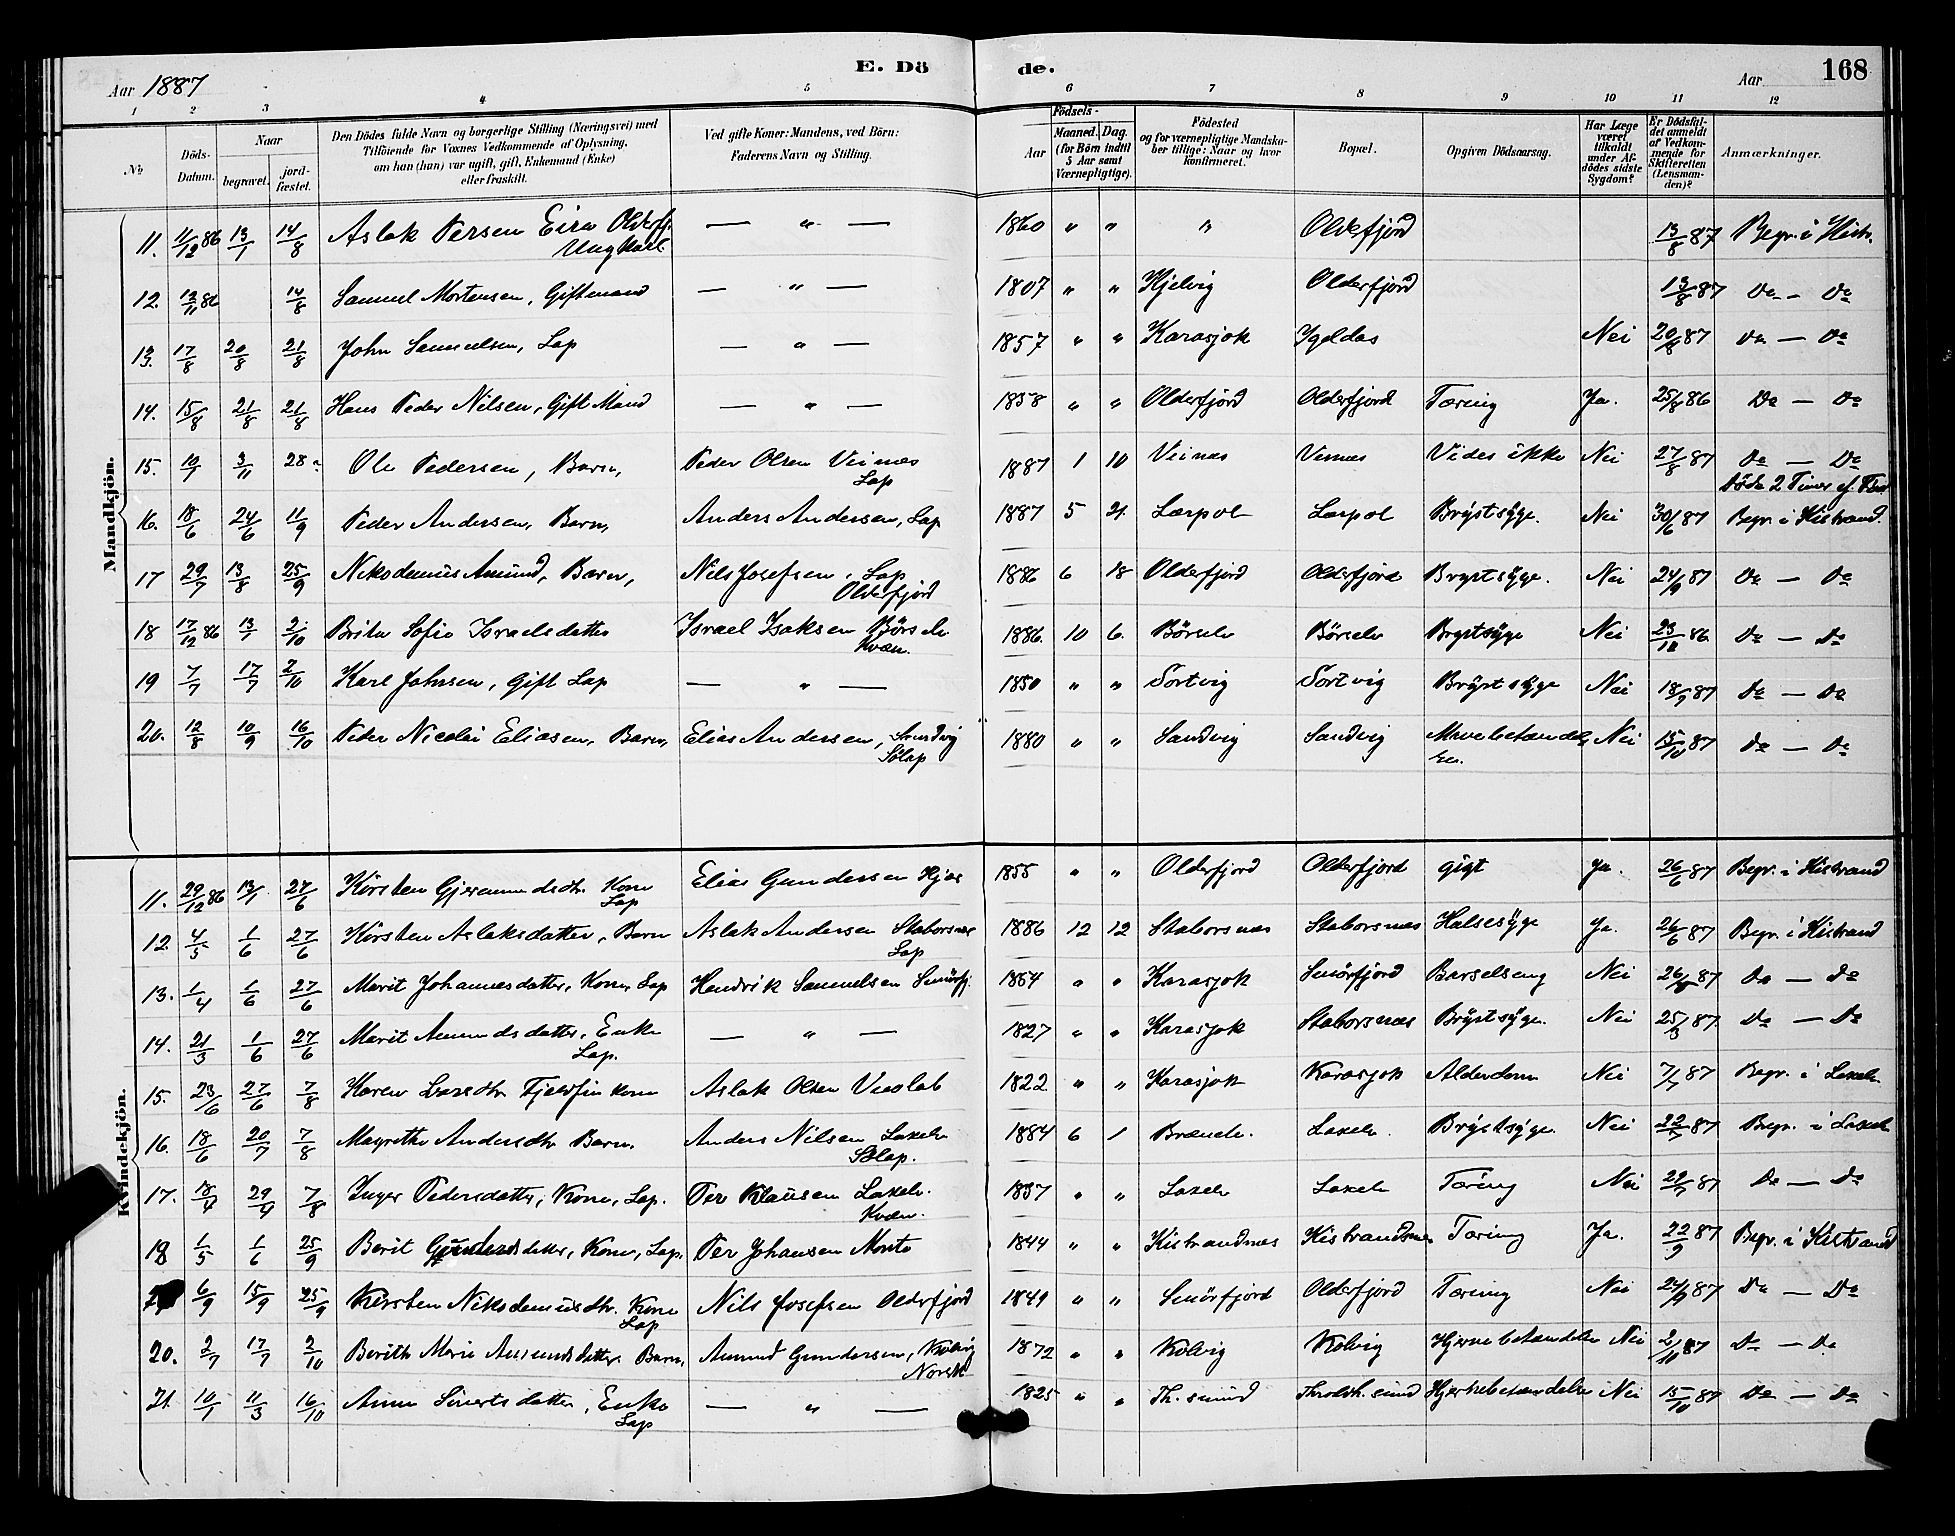 Aar 1887
E. Dö de.
Aar 168
1 2 3 4 5 6 7 8 9 10 11 12
No
Döds-Datum.
Naar begravet. jordfæstet.
Den Dödes fulde Navn og borgerlige Stilling (Næringsvei) med
Tilföiende for Voxnes Vedkommende af Oplysning,
om han (hun) var ugift, gift, Enkemand (Enke)
eller fraskilt.
Ved gifte Koner: Mandens, ved Börn:
Faderens Navn og Stilling.
Födsels-
Aar Maaned. Dag.
(for Börn indtil
5 Aar samt
Værnepligtige).
Födested
og for værnepligtige Mandskaber tillige: Naar og hvor
konfirmeret.
Bopæl.
Opgiven Dödsaarsag.
Har Læge
været
tilkaldt
under Afdödes sidste
Sygdom?
Er Dödsfaldet anmeldt
af Vedkommende for
Skifteretten
(Lensmanden)?
Anmærkninger.
Mandkjön.
11. 11/12 86 13/1 14/8 Aslak Persen Eira Olderfj. Ungkarl — " — 1860 " " " Olderfjord 13/8 87 Begr. i Kistr.
12. 13/11 86 14/8 Samuel Mortensen, Giftmand — " — 1807 " " Hjelvig Olderfjord 13/8 87 Do — Do
13. 17/8 20/8 21/8 John Samuelsen, Lap — " — 1857 " " Karasjok Igeldas Nei 20/8 87 Do — Do
14. 15/8 21/8 21/8 Hans Peder Nilsen, Gift Mand — " — 1858 " " Olderfjord Olderfjord Tæring Ja. 25/8 86 Do — Do
15. 10/1 3/11 28 " Ole Pedersen, Barn, Peder Olsen Veinæs Lap 1887 1 10 Veinæs Veinæs Vides ikke Nei 27/8 87 Do — Do
Döde 2 Timer ef. Föd
16. 18/6 24/6 11/9 Peder Andersen, Barn, Anders Andersen, Lap 1887 5 21. Lærpol Lærpol Brÿstsÿge. Nei 30/6 87 Begr. i Kistrand.
17 29/7 13/8 25/9 Nikodemus Amund, Barn, Nils Josefsen, Lap Olderfjord 1886 6 18 Olderfjord Olderfjord Brystsÿge. Nei 24/9 87 Do — Do
18 17/12 86 13/1 2/10 Brita Sofie Israelsdatter Israel Isaksen Börselv Kvæn. 1886. 10 6. Börselv Börselv Brystsÿge Nei 23/12 86 Do — Do
19 7/7 17/7 2/10 Karl Johnsen, Gift Lap — " — 1850 " " Sortvig Sortvig Brÿstsÿge Nei 18/7 87 Do — Do
20. 12/8 10/9 16/10 Peder Nicolai Eliasen, Barn, Elias Andersen, Sandvig Sölap 1880 " " Sandvig Sandvig Mavebetændelsen. Nei 15/10 87 Do — Do
Kvindekjön.
11. 29/12 86 13/1 27/6 Kirsten Gjermundsdtr. Kone Lap Elias Gundersen Hjær 1855 " " Olderfjord Olderfjord gigt Ja. 26/6 87 Begr. i Kistrand
12 4/5 1/6 27/6 Kirsten Aslaksdatter, Barn Aslak Andersen Staborsnæs Lap 1886 12 12 Staborsnæs Staborsnæs Halsesÿge Ja. 26/6 87 Begr. i Kistrand
13. 1/4 1/6 27/6 Marit Johannesdatter, Kone, Lap Hendrik Samuelsen Smörfj. 1864 " " Karasjok Smörfjord Barselseng Nei 26/6 87 Do — Do
14. 21/3 1/6 27/6 Marit Amundsdatter, Enke Lap. — " — 1827 " " Karasjok Staborsnæs Brÿstsÿge. Nei 25/3 87. Do — Do
15. 23/6 27/6 7/8 Karen Larsdtr Fjeldfin kone Aslak Olsen Vuolab 1822 " " Karasjok Karasjok Alderdom Nei 7/7 87 Begr. i Laxelv
16. 18/6 20/7 7/8 Magrethe Andersdtr Barn. Anders Nilsen Laxelv Sölap. 1884 6 1 Brænelv. Laxelv. Brÿstsÿge Nei 22/7 87 Begr. i Laxelv
17. 18/4 29/4 7/8 Inger Pedersdatter, Kone, Lap. Per Klausen Laxelv. Kvæn. 1837 " " Laxelv Laxelv Tæring Nei 21/7 87 Do — Do
18 1/5 1/6 25/9 Berit datter, Kone, Lap. Per Johansen Monto 1844 " " Kistrandnæs Kistrandsnæs Tæring Ja. 22/9 87 Begr. i Kistrand
6/9 15/9 25/9 Kirsten Nikodemusdtr. Kone Lap Nils Josefsen Olderfjord 1849 " " Smörfjord Olderfjord Tæring Nei 24/9 87 Do — Do
20. 2/7 17/7 2/10 Berith Marie Amundsdatter Barn, Amund Gundersen, Kolvig Norsk 1872 " " Kolvig Kolvig Hjernebetændelse Nei 2/10 87 Do — Do
21. 10/1 11/3 16/10 Anne Sivertsdatter, Enke Lap — " — 1825 " " Th. sund Throldh. sund Hjertebetændelse Nei 15/10 87 Do — Do